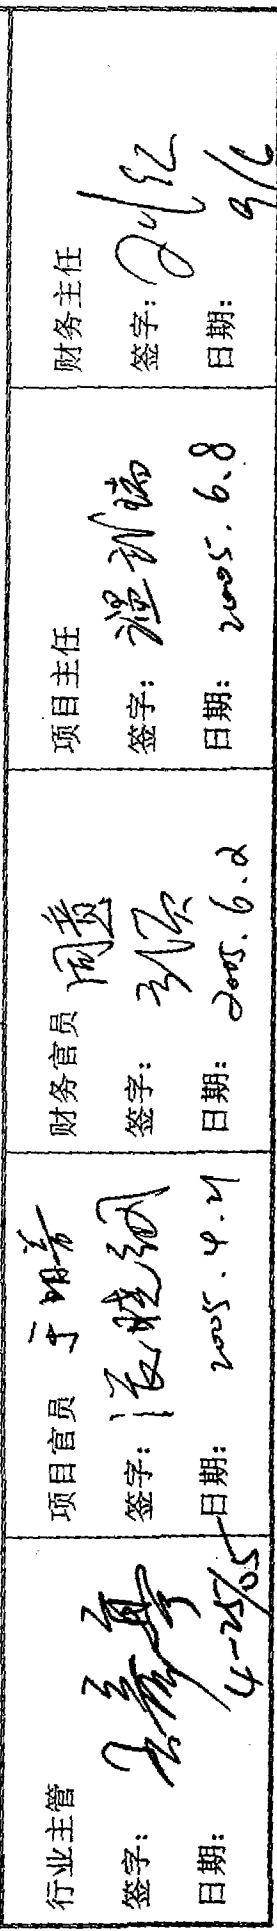 行业主管
签字：
日期： 4-25/05
项目官员
签字： 张晓红
日期： 2005.4.21
财务官员 同意
签字：
日期： 2005.6.2
项目主任
签字：
日期： 2005.6.8
财务主任
签字：
日期： 9/6